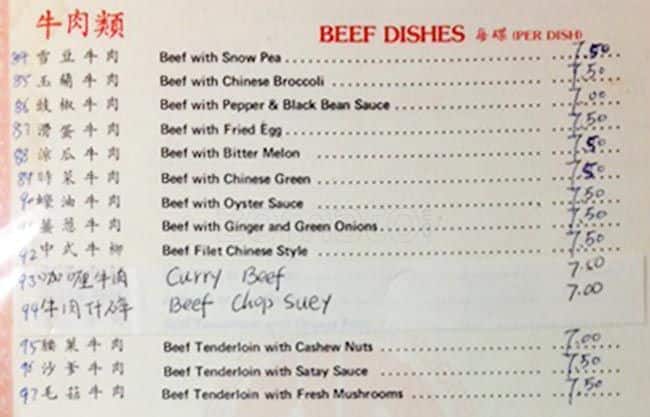 牛肉類 BEEF DISHES 每碟 (PER DISH)
84 雪豆牛肉 Beef with Snow Pea 7.50
85 玉蘭牛肉 Beef with Chinese Broccoli 7.50
86 豉椒牛肉 Beef with Pepper & Black Bean Sauce 7.00
87 滑蛋牛肉 Beef with Fried Egg 7.50
88 涼瓜牛肉 Beef with Bitter Melon 7.50
89 時菜牛肉 Beef with Chinese Green 7.50
90 蠔油牛肉 Beef with Oyster Sauce 7.50
91 薑蔥牛肉 Beef with Ginger and Green Onions 7.50
92 中式牛柳 Beef Filet Chinese Style 7.50
93 咖喱牛肉 Curry Beef 7.50
94 牛肉什碎 Beef Chop Suey 7.00
95 腰菓牛肉 Beef Tenderloin with Cashew Nuts 7.00
96 沙爹牛肉 Beef Tenderloin with Satay Sauce 7.50
97 毛菇牛肉 Beef Tenderloin with Fresh Mushrooms 7.50